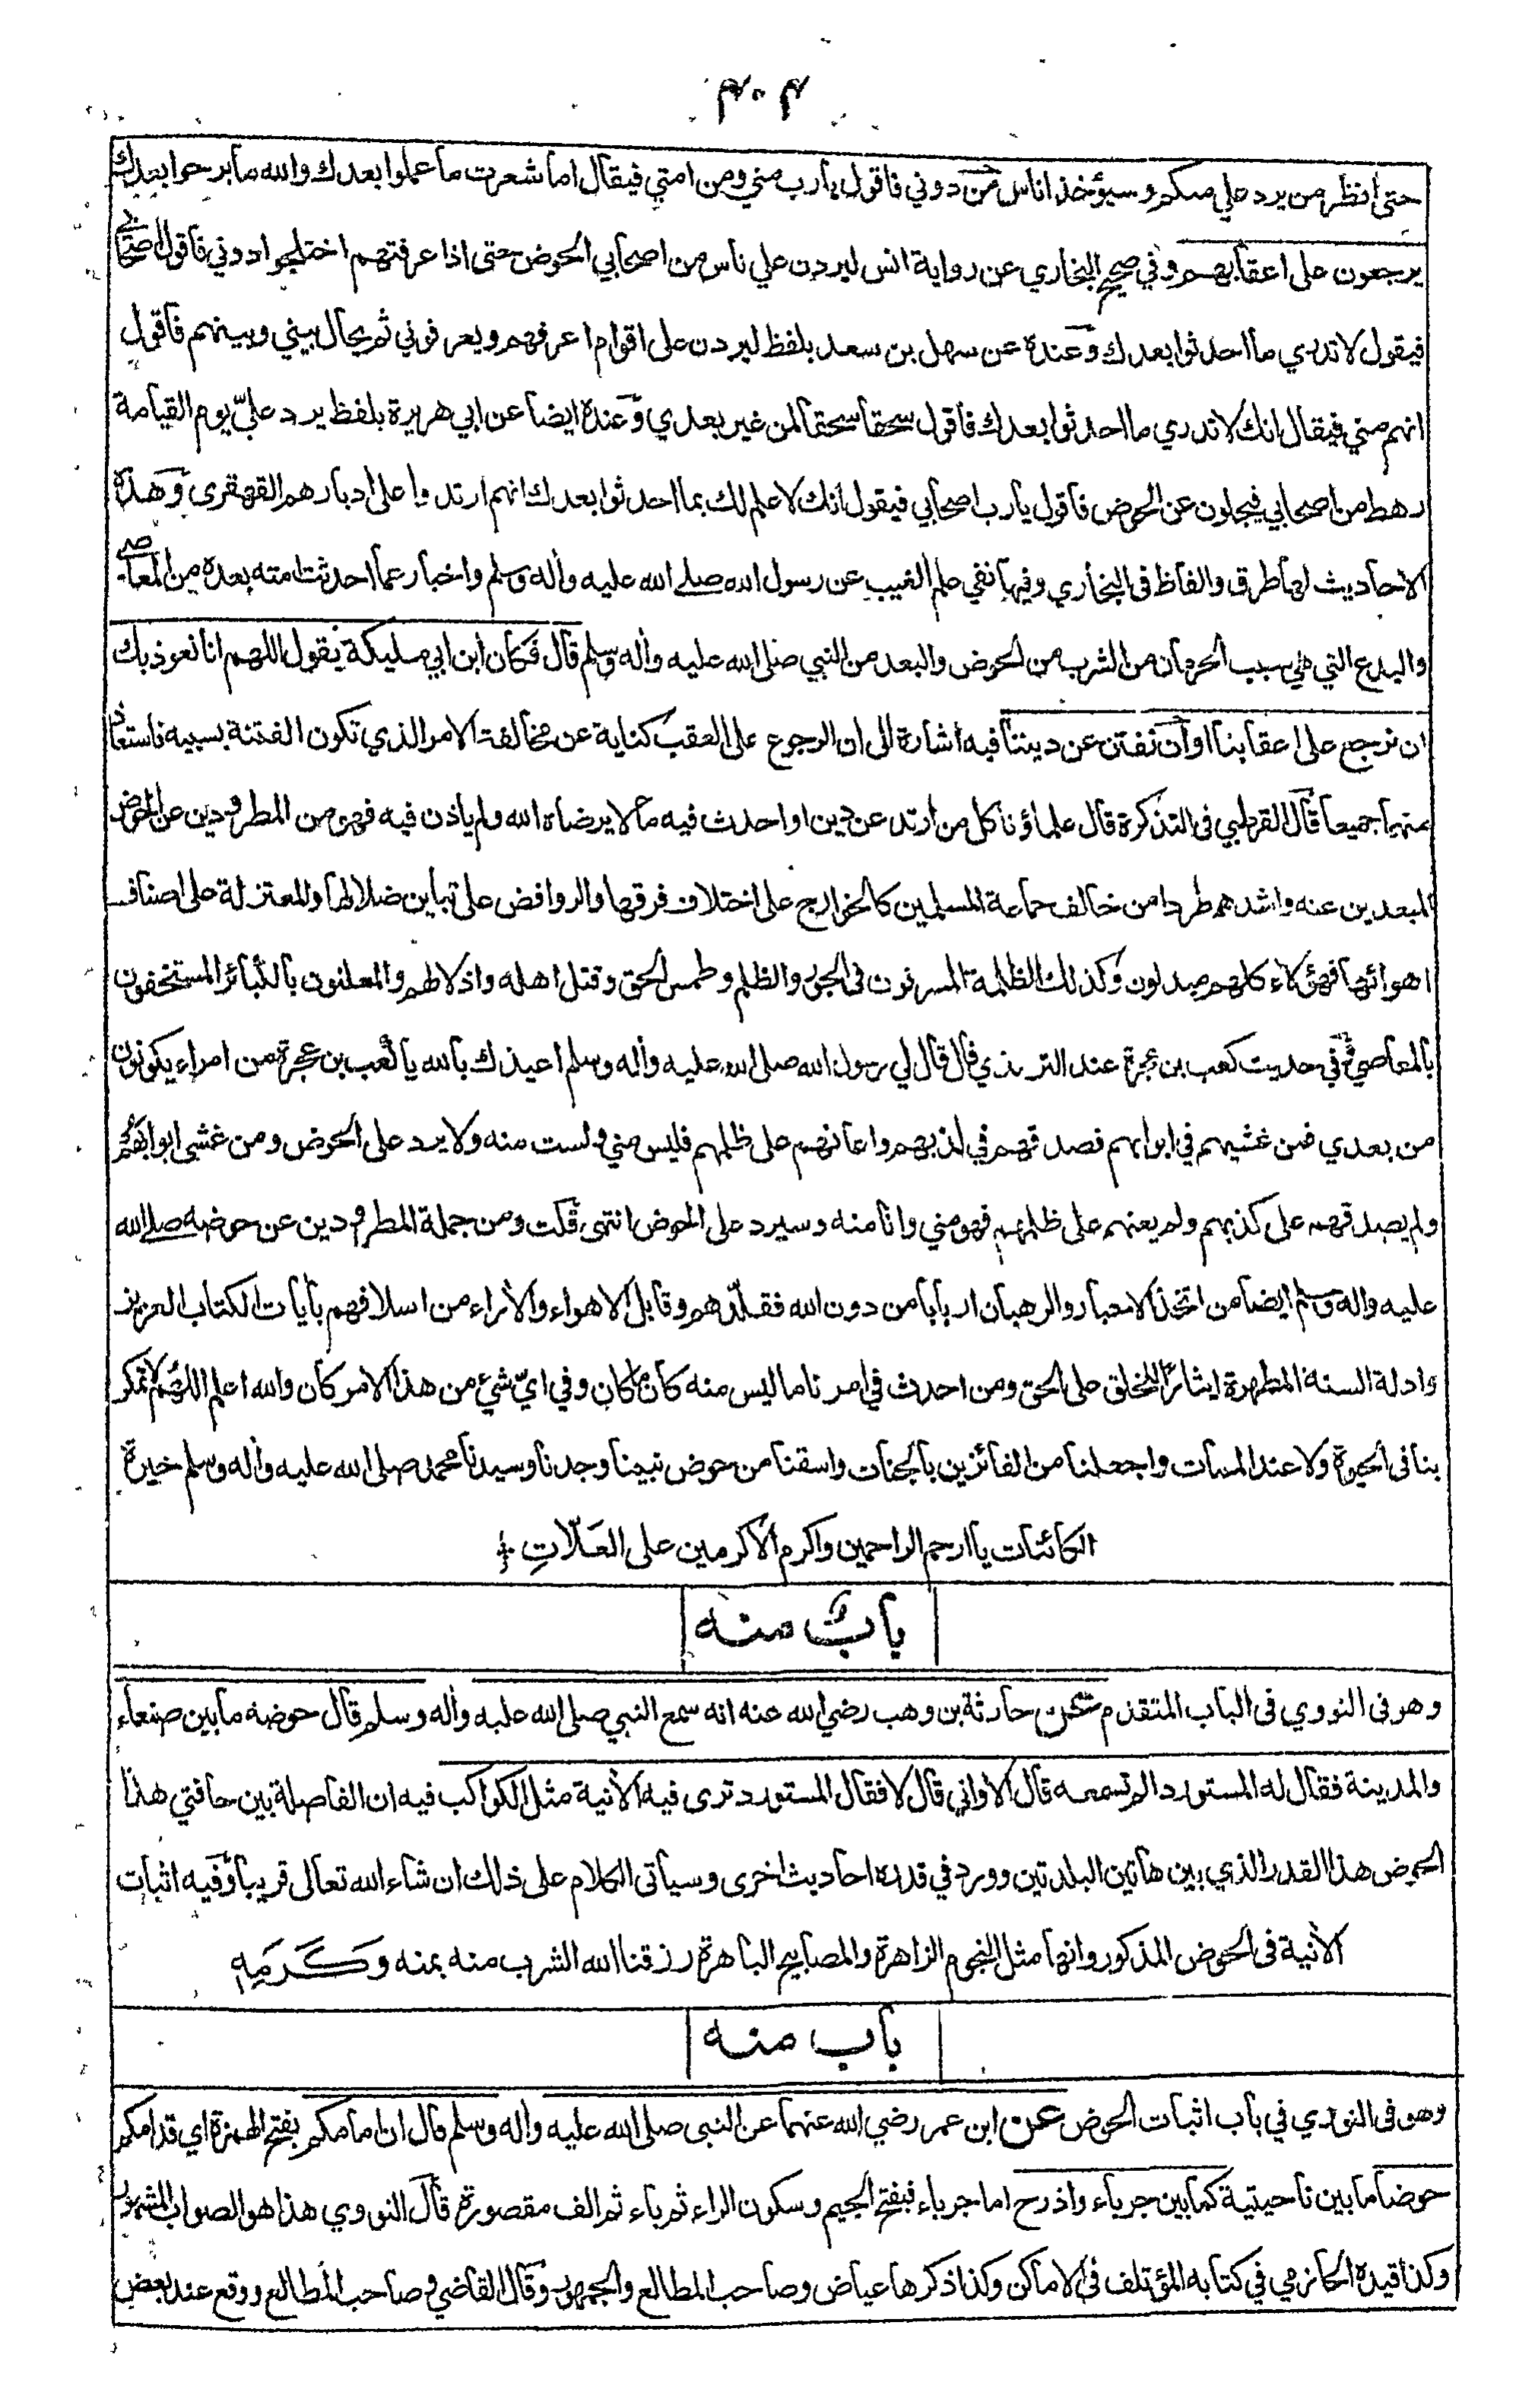 ٣٠٣
حتى انظر من يرد علي منكم وسيؤخذ اناس من دوني فاقول يارب مني ومن امتي فيقال اما شعرت ما عملوا بعدك والله ما برحوا بعدك
يرجعون على اعقابهم وفي صحيح البخاري عن رواية انس ليردن علي ناس من اصحابي الحوض حتى اذا عرفتهم اختلجوا دوني فاقول اصحابي
فيقول لا تدري ما احدثوا بعدك وعنده عن سهل بن سعد بلفظ ليردن على اقوام اعرفهم ويعرفوني ثم يحال بيني وبينهم فاقول
انهم مني فيقال انك لا تدري ما احدثوا بعدك فاقول سحقا سحقا لمن غير بعدي وعنده ايضا عن ابي هريرة بلفظ يرد عليّ يوم القيامة
رهط من اصحابي فيجلون عن الحوض فاقول يارب اصحابي فيقول انك لا علم لك بما احدثوا بعدك انهم ارتدوا على ادبارهم القهقرى وهذه
الاحاديث لها طرق والفاظ فى البخاري وفيها نفي علم الغيب عن رسول الله صلى الله عليه واله وسلم واخبار عما احدثت امته بعده من المعاصي
والبدع التي هي سبب الحرمان من الشرب من الحوض والبعد من النبي صلى الله عليه واله وسلم قال فكان ابن ابي مليكة يقول اللهم انا نعوذ بك
ان نرجع على اعقابنا او أن نفتن عن ديننا فيه اشارة الى ان الرجوع على العقب كناية عن مخالفة الامر الذي تكون الفتنة بسببه فاستعاذ
منهما جميعا قال القرطبي فى التذكرة قال علماؤنا كل من ارتد عن دين او احدث فيه ما لا يرضاه الله ولم ياذن فيه فهو من المطرودين عن الحوض
المبعدين عنه واشدهم طردا من خالف جماعة المسلمين كالخوارج على اختلاف فرقها والروافض على تباين ضلالها والمعتزلة على اصناف
اهوائها فهؤلاء كلهم مبدلون وكذلك الظلمة المسرفون فى الجور والظلم وطمس الحق وقتل اهله واذلالهم والمعلنون بالكبائر المستخفون
بالمعاصي وفي حديث كعب بن عجرة عند الترمذي قال قال لي رسول الله صلى الله عليه واله وسلم اعيذك بالله يا كعب بن عجرة من امراء يكونون
من بعدي فمن غشيهم في ابوابهم فصدقهم في كذبهم واعانهم على ظلمهم فليس مني ولست منه ولا يرد على الحوض ومن غشي ابوابهم
ولم يصدقهم على كذبهم ولم يعنهم على ظلمهم فهو مني وانا منه وسيرد على الحوض انتهى قلت ومن جملة المطرودين عن حوضه صلى الله
عليه واله وسلم ايضا من اتخذ الاحبار والرهبان اربابا من دون الله فقلّدهم وقابل الاهواء والآراء من اسلافهم بآيات الكتاب العزيز
وادلة السنة المطهرة ايثارًا للخلق على الحق ومن احدث في امرنا ما ليس منه كان ما كان وفي ايّ شيء من هذا الامر كان والله اعلم اللهم لا تمكر
بنا فى الحيوة ولا عند الممات واجعلنا من الفائزين بالجنات واسقنا من حوض نبينا وجدنا وسيدنا محمد صلى الله عليه واله وسلم خيرة
الكائنات يا ارحم الراحمين واكرم الاكرمين على العَلّاتِ
باب منه
وهو فى النووي فى الباب المتقدم عن حارثة بن وهب رضي الله عنه انه سمع النبي صلى الله عليه واله وسلم قال حوضه ما بين صنعاء
والمدينة فقال له المستورد الم تسمعه قال الاواني قال لا فقال المستورد ترى فيه الآنية مثل الكواكب فيه ان الفاصلة بين حافتي هذا
الحوض هذا القدر الذي بين هاتين البلدتين وورد في قدره احاديث اخرى وسيأتى الكلام على ذلك ان شاء الله تعالى قريبا وفيه اثبات
الآنية فى الحوض المذكور وانها مثل النجوم الزاهرة والمصابيح الباهرة رزقنا الله الشرب منه بمنه وكَرَمِهِ
باب منه
وهو فى النووي في باب اثبات الحوض عن ابن عمر رضي الله عنهما عن النبي صلى الله عليه واله وسلم قال ان امامكم بفتح الهمزة اي قدامكم
حوضا ما بين ناحيتيه كما بين جرباء واذرح اما جرباء فبفتح الجيم وسكون الراء ثم باء ثم الف مقصورة قال النووي هذا هو الصواب المشهور
وكذا قيده الحازمي في كتابه المؤتلف فى الاماكن وكذا ذكرها عياض وصاحب المطالع والجمهور وقال القاضي وصاحب المطالع ووقع عند بعض